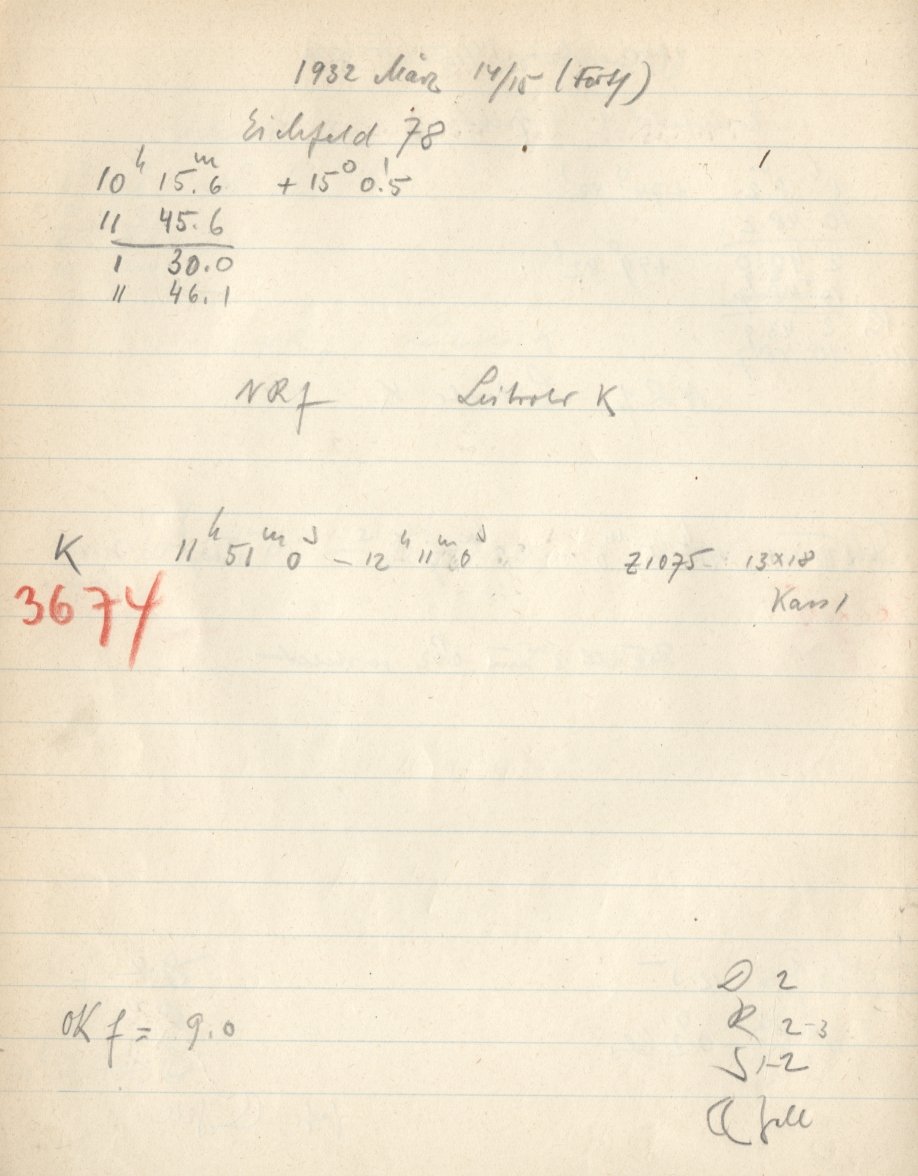 1932 März 14/15 (Forts)
Eichfeld 78
10h 15m.6 + 15° 0'.5
11 45.6
1 30.0
11 46.1
NRf Leitrohr K
K 11h 51m 0s – 12h 11m 0s Z1075 13x18
3674 Kass 1
D 2
R 2-3
OK f = 9.0
S 1-2
☾ hell